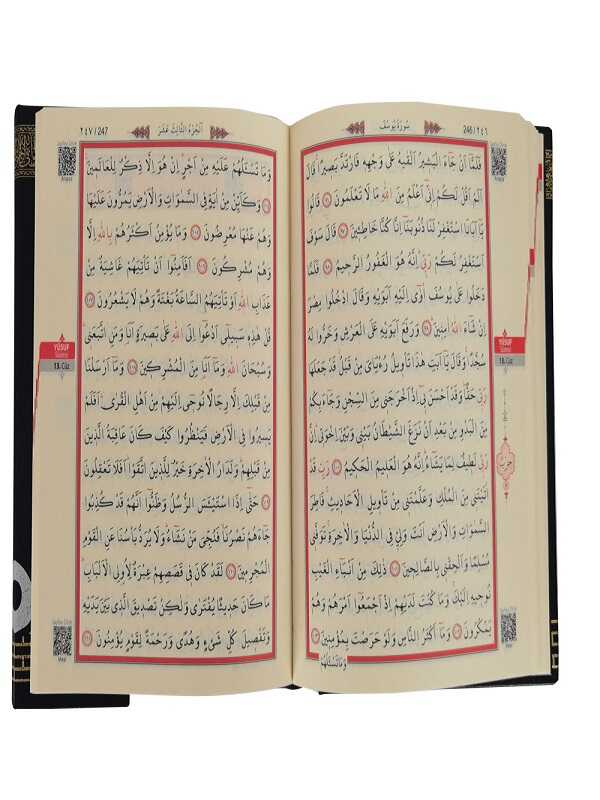 سُورَةُ يُوسُفَ 246/٢٤٦
فَلَمَّٓا اَنْ جَٓاءَ الْبَشٖيرُ اَلْقٰيهُ عَلٰى وَجْهِهٖ فَارْتَدَّ بَصٖيرًاۚ قَالَ
اَلَمْ اَقُلْ لَكُمْ اِنّٖٓى اَعْلَمُ مِنَ اللّٰهِ مَا لَا تَعْلَمُونَ ﴿٩٦﴾ قَالُوا
يَٓا اَبَانَا اسْتَغْفِرْ لَنَا ذُنُوبَنَٓا اِنَّا كُنَّا خَاطِـٖٔينَ ﴿٩٧﴾ قَالَ سَوْفَ
اَسْتَغْفِرُ لَكُمْ رَبّٖىۜ اِنَّهُ هُوَ الْغَفُورُ الرَّحٖيمُ ﴿٩٨﴾ فَلَمَّا
دَخَلُوا عَلٰى يُوسُفَ اٰوٰٓى اِلَيْهِ اَبَوَيْهِ وَقَالَ ادْخُلُوا مِصْرَ
اِنْ شَٓاءَ اللّٰهُ اٰمِنٖينَ ﴿٩٩﴾ وَرَفَعَ اَبَوَيْهِ عَلَى الْعَرْشِ وَخَرُّوا لَهُ
سُجَّدًاۚ وَقَالَ يَٓا اَبَتِ هٰذَا تَأْوٖيلُ رُءْيَاىَ مِنْ قَبْلُۘ قَدْ جَعَلَهَا
رَبّٖى حَقًّاۜ وَقَدْ اَحْسَنَ بٖٓى اِذْ اَخْرَجَنٖى مِنَ السِّجْنِ وَجَٓاءَ بِكُمْ
مِنَ الْبَدْوِ مِنْ بَعْدِ اَنْ نَزَغَ الشَّيْطَانُ بَيْنٖى وَبَيْنَ اِخْوَتٖىۜ اِنَّ
رَبّٖى لَطٖيفٌ لِمَا يَشَٓاءُۜ اِنَّهُ هُوَ الْعَلٖيمُ الْحَكٖيمُ ﴿١٠٠﴾ رَبِّ قَدْ
اٰتَيْتَنٖى مِنَ الْمُلْكِ وَعَلَّمْتَنٖى مِنْ تَأْوٖيلِ الْاَحَادٖيثِۚ فَاطِرَ
السَّمٰوَاتِ وَالْاَرْضِ اَنْتَ وَلِيّٖ فِى الدُّنْيَا وَالْاٰخِرَةِۚ تَوَفَّنٖى
مُسْلِمًا وَاَلْحِقْنٖى بِالصَّالِحٖينَ ﴿١٠١﴾ ذٰلِكَ مِنْ اَنْبَٓاءِ الْغَيْبِ
نُوحٖيهِ اِلَيْكَۚ وَمَا كُنْتَ لَدَيْهِمْ اِذْ اَجْمَعُٓوا اَمْرَهُمْ وَهُمْ
يَمْكُرُونَ ﴿١٠٢﴾ وَمَٓا اَكْثَرُ النَّاسِ وَلَوْ حَرَصْتَ بِمُؤْمِنٖينَ ﴿١٠٣﴾
وَمَا تَسْـَٔلُهُمْ
YÛSUF
Sûresi
13. Cüz
حزب
Meal
اَلْجُزْءُ الثَّالِثَ عَشَرَ 247/٢٤٧
وَمَا تَسْـَٔلُهُمْ عَلَيْهِ مِنْ اَجْرٍۜ اِنْ هُوَ اِلَّا ذِكْرٌ لِلْعَالَمٖينَ
﴿١٠٤﴾ وَكَاَيِّنْ مِنْ اٰيَةٍ فِى السَّمٰوَاتِ وَالْاَرْضِ يَمُرُّونَ عَلَيْهَا
وَهُمْ عَنْهَا مُعْرِضُونَ ﴿١٠٥﴾ وَمَا يُؤْمِنُ اَكْثَرُهُمْ بِاللّٰهِ اِلَّا
وَهُمْ مُشْرِكُونَ ﴿١٠٦﴾ اَفَاَمِنُٓوا اَنْ تَأْتِيَهُمْ غَاشِيَةٌ مِنْ
عَذَابِ اللّٰهِ اَوْ تَأْتِيَهُمُ السَّاعَةُ بَغْتَةً وَهُمْ لَا يَشْعُرُونَ ﴿١٠٧﴾
قُلْ هٰذِهٖ سَبٖيلٖٓى اَدْعُٓوا اِلَى اللّٰهِ عَلٰى بَصٖيرَةٍ اَنَا۬ وَمَنِ اتَّبَعَنٖىۜ
وَسُبْحَانَ اللّٰهِ وَمَٓا اَنَا۬ مِنَ الْمُشْرِكٖينَ ﴿١٠٨﴾ وَمَٓا اَرْسَلْنَا
مِنْ قَبْلِكَ اِلَّا رِجَالًا نُوحٖٓى اِلَيْهِمْ مِنْ اَهْلِ الْقُرٰىۜ اَفَلَمْ
يَسٖيرُوا فِى الْاَرْضِ فَيَنْظُرُوا كَيْفَ كَانَ عَاقِبَةُ الَّذٖينَ
مِنْ قَبْلِهِمْۜ وَلَدَارُ الْاٰخِرَةِ خَيْرٌ لِلَّذٖينَ اتَّقَوْاۜ اَفَلَا تَعْقِلُونَ
﴿١٠٩﴾ حَتّٰٓى اِذَا اسْتَيْـَٔسَ الرُّسُلُ وَظَنُّٓوا اَنَّهُمْ قَدْ كُذِبُوا
جَٓاءَهُمْ نَصْرُنَاۙ فَنُجِّىَ مَنْ نَشَٓاءُۜ وَلَا يُرَدُّ بَأْسُنَا عَنِ الْقَوْمِ
الْمُجْرِمٖينَ ﴿١١٠﴾ لَقَدْ كَانَ فٖى قَصَصِهِمْ عِبْرَةٌ لِاُو۬لِى الْاَلْبَابِۜ
مَا كَانَ حَدٖيثًا يُفْتَرٰى وَلٰكِنْ تَصْدٖيقَ الَّذٖى بَيْنَ يَدَيْهِ
وَتَفْصٖيلَ كُلِّ شَىْءٍ وَهُدًى وَرَحْمَةً لِقَوْمٍ يُؤْمِنُونَ ﴿١١١﴾
YÛSUF
Sûresi
13. Cüz
Meal